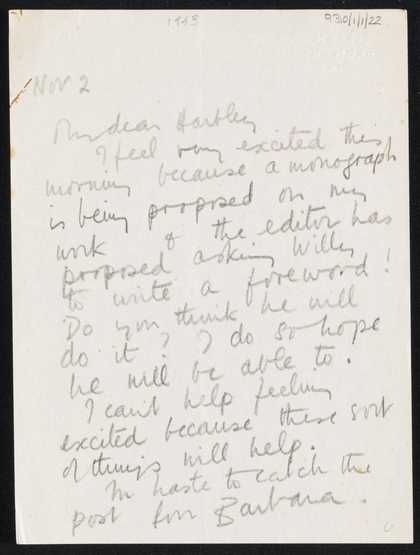 1943
9310/1/1/22
Nov 2
My dear Hartley
I feel very excited this
morning because a monograph
is being proposed on my
work & the editor has
proposed asking Willy
to write a foreword!
Do you think he will
do it? I do so hope
he will be able to.
I can't help feeling
excited because these sort
of things will help.
In haste to catch the
post from Barbara.